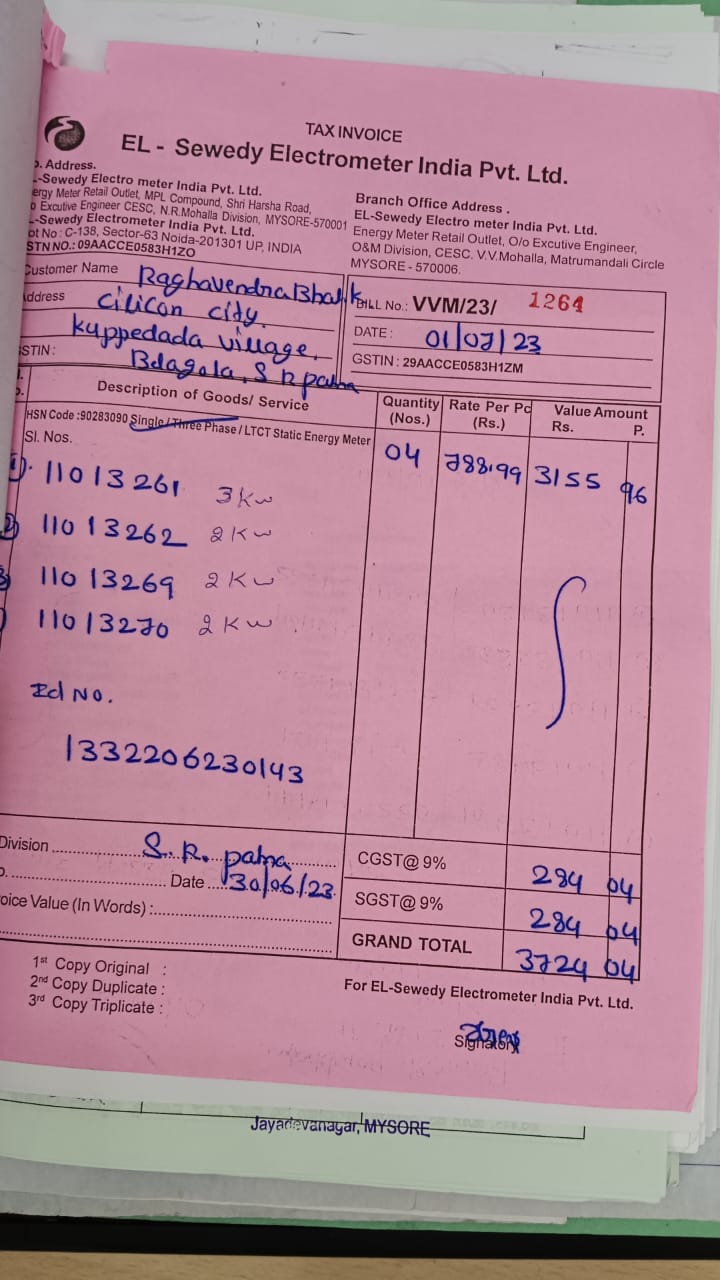 TAX INVOICE
EL - Sewedy Electrometer India Pvt. Ltd.
o. Address.
-Sewedy Electro meter India Pvt. Ltd.
ergy Meter Retail Outlet, MPL Compound, Shri Harsha Road,
o Excutive Engineer CESC, N.R.Mohalla Division, MYSORE-570001
-Sewedy Electrometer India Pvt. Ltd.
ot No : C-138, Sector-63 Noida-201301 UP, INDIA
STN NO.: 09AACCE0583H1ZO
Branch Office Address .
EL-Sewedy Electro meter India Pvt. Ltd.
Energy Meter Retail Outlet, O/o Excutive Engineer,
O&M Division, CESC. V.V.Mohalla, Matrumandali Circle
MYSORE - 570006.
Customer Name Raghavendra Bhat.K
Address cilicon city.
kuppedada village,
GSTIN : Belagola, S R patna
BILL No.: VVM/23/ 1264
DATE : 01/07/23
GSTIN : 29AACCE0583H1ZM
Description of Goods/ Service Quantity (Nos.) Rate Per Pc (Rs.) Value Amount Rs. P.
HSN Code :90283090 Single / Three Phase / LTCT Static Energy Meter
Sl. Nos. 04 788.99 3155 96
1). 11013261 3 Kw
2) 11013262 2 Kw
3) 11013269 2 Kw
) 11013270 2 Kw
Ed No.
1332206230143
Division S. R. patna
Date 30/06/23
oice Value (In Words) :
CGST@ 9% 284 04
SGST@ 9% 284 04
GRAND TOTAL 3724 04
1st Copy Original :
2nd Copy Duplicate :
3rd Copy Triplicate :
For EL-Sewedy Electrometer India Pvt. Ltd.
Signatory
Jayadevanagar, MYSORE